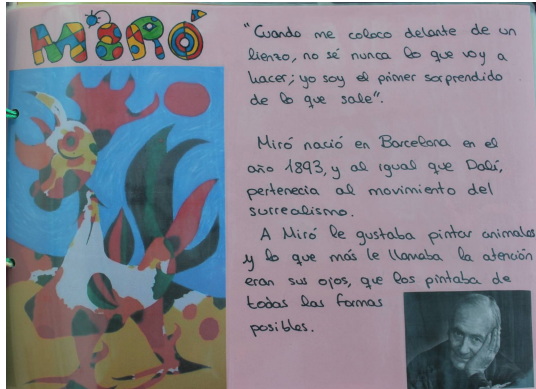 MiRó
"Cuando me coloco delante de un
lienzo, no sé nunca lo que voy a
hacer; yo soy el primer sorprendido
de lo que sale".
Miró nació en Barcelona en el
año 1893, y al igual que Dalí,
pertenecia al movimiento del
surrealismo.
A Miró le gustaba pintar animales
y lo que más le llamaba la atención
eran sus ojos, que los pintaba de
todas las formas
posibles.